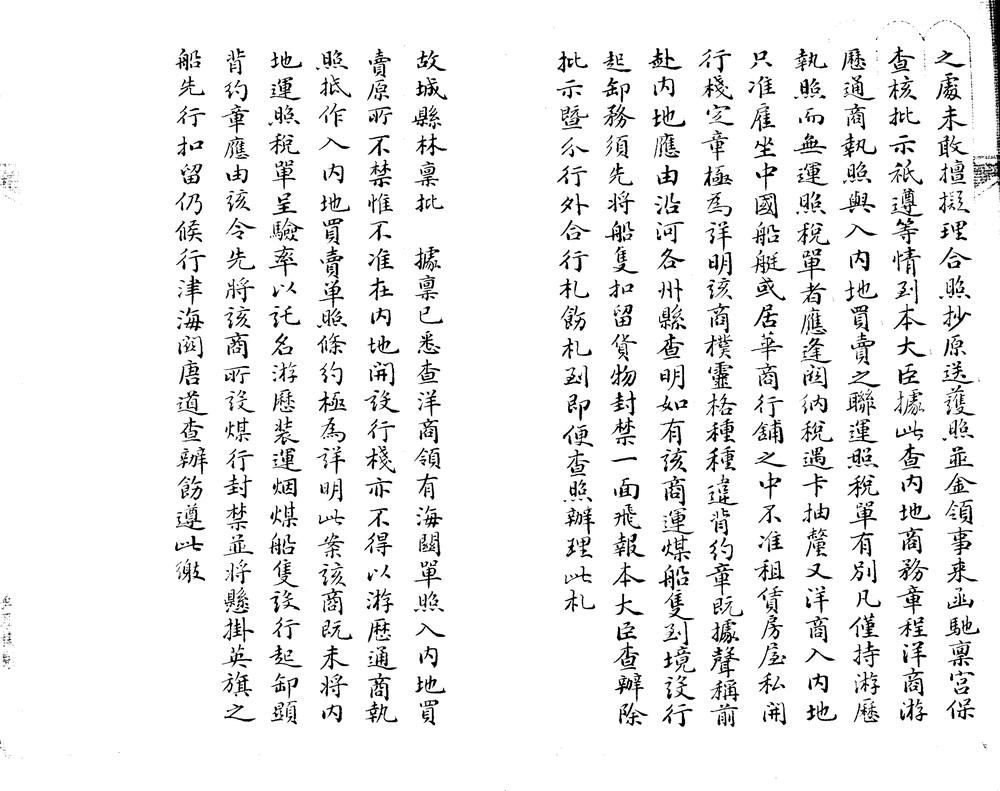 之處未敢擅擬理合照抄原送護照並金領事来函馳稟宮保
查核批示祇遵等情到本大臣據此查内地商務章程洋商游
歷通商執照與入内地買賣之聯運照稅單有别凡僅持游歷
執照而無運照稅單者應逢関納稅遇卡抽釐又洋商入内地
只准雇坐中國船艇或居華商行舖之中不准租賃房屋私開
行棧定章極為詳明該商樸靈格種種違背約章既據聲稱前
赴内地應由沿河各州縣查明如有該商運煤船隻到境設行
起卸務須先將船隻扣留貨物封禁一面飛報本大臣查辦除
批示暨分行外合行札飭札到即便查照辦理此札
故城縣林稟批　據稟已悉查洋商領有海關單照入内地買
賣原所不禁惟不准在内地開設行棧亦不得以游歷通商執
照抵作入内地買賣单照條約極為詳明此案該商既未将内
地運照稅單呈驗率以託名游歷裝運烟煤船隻設行起卸顯
背約章應由該令先將該商所設煤行封禁並將懸掛英旗之
船先行扣留仍候行津海関唐道查辦飭遵此繳